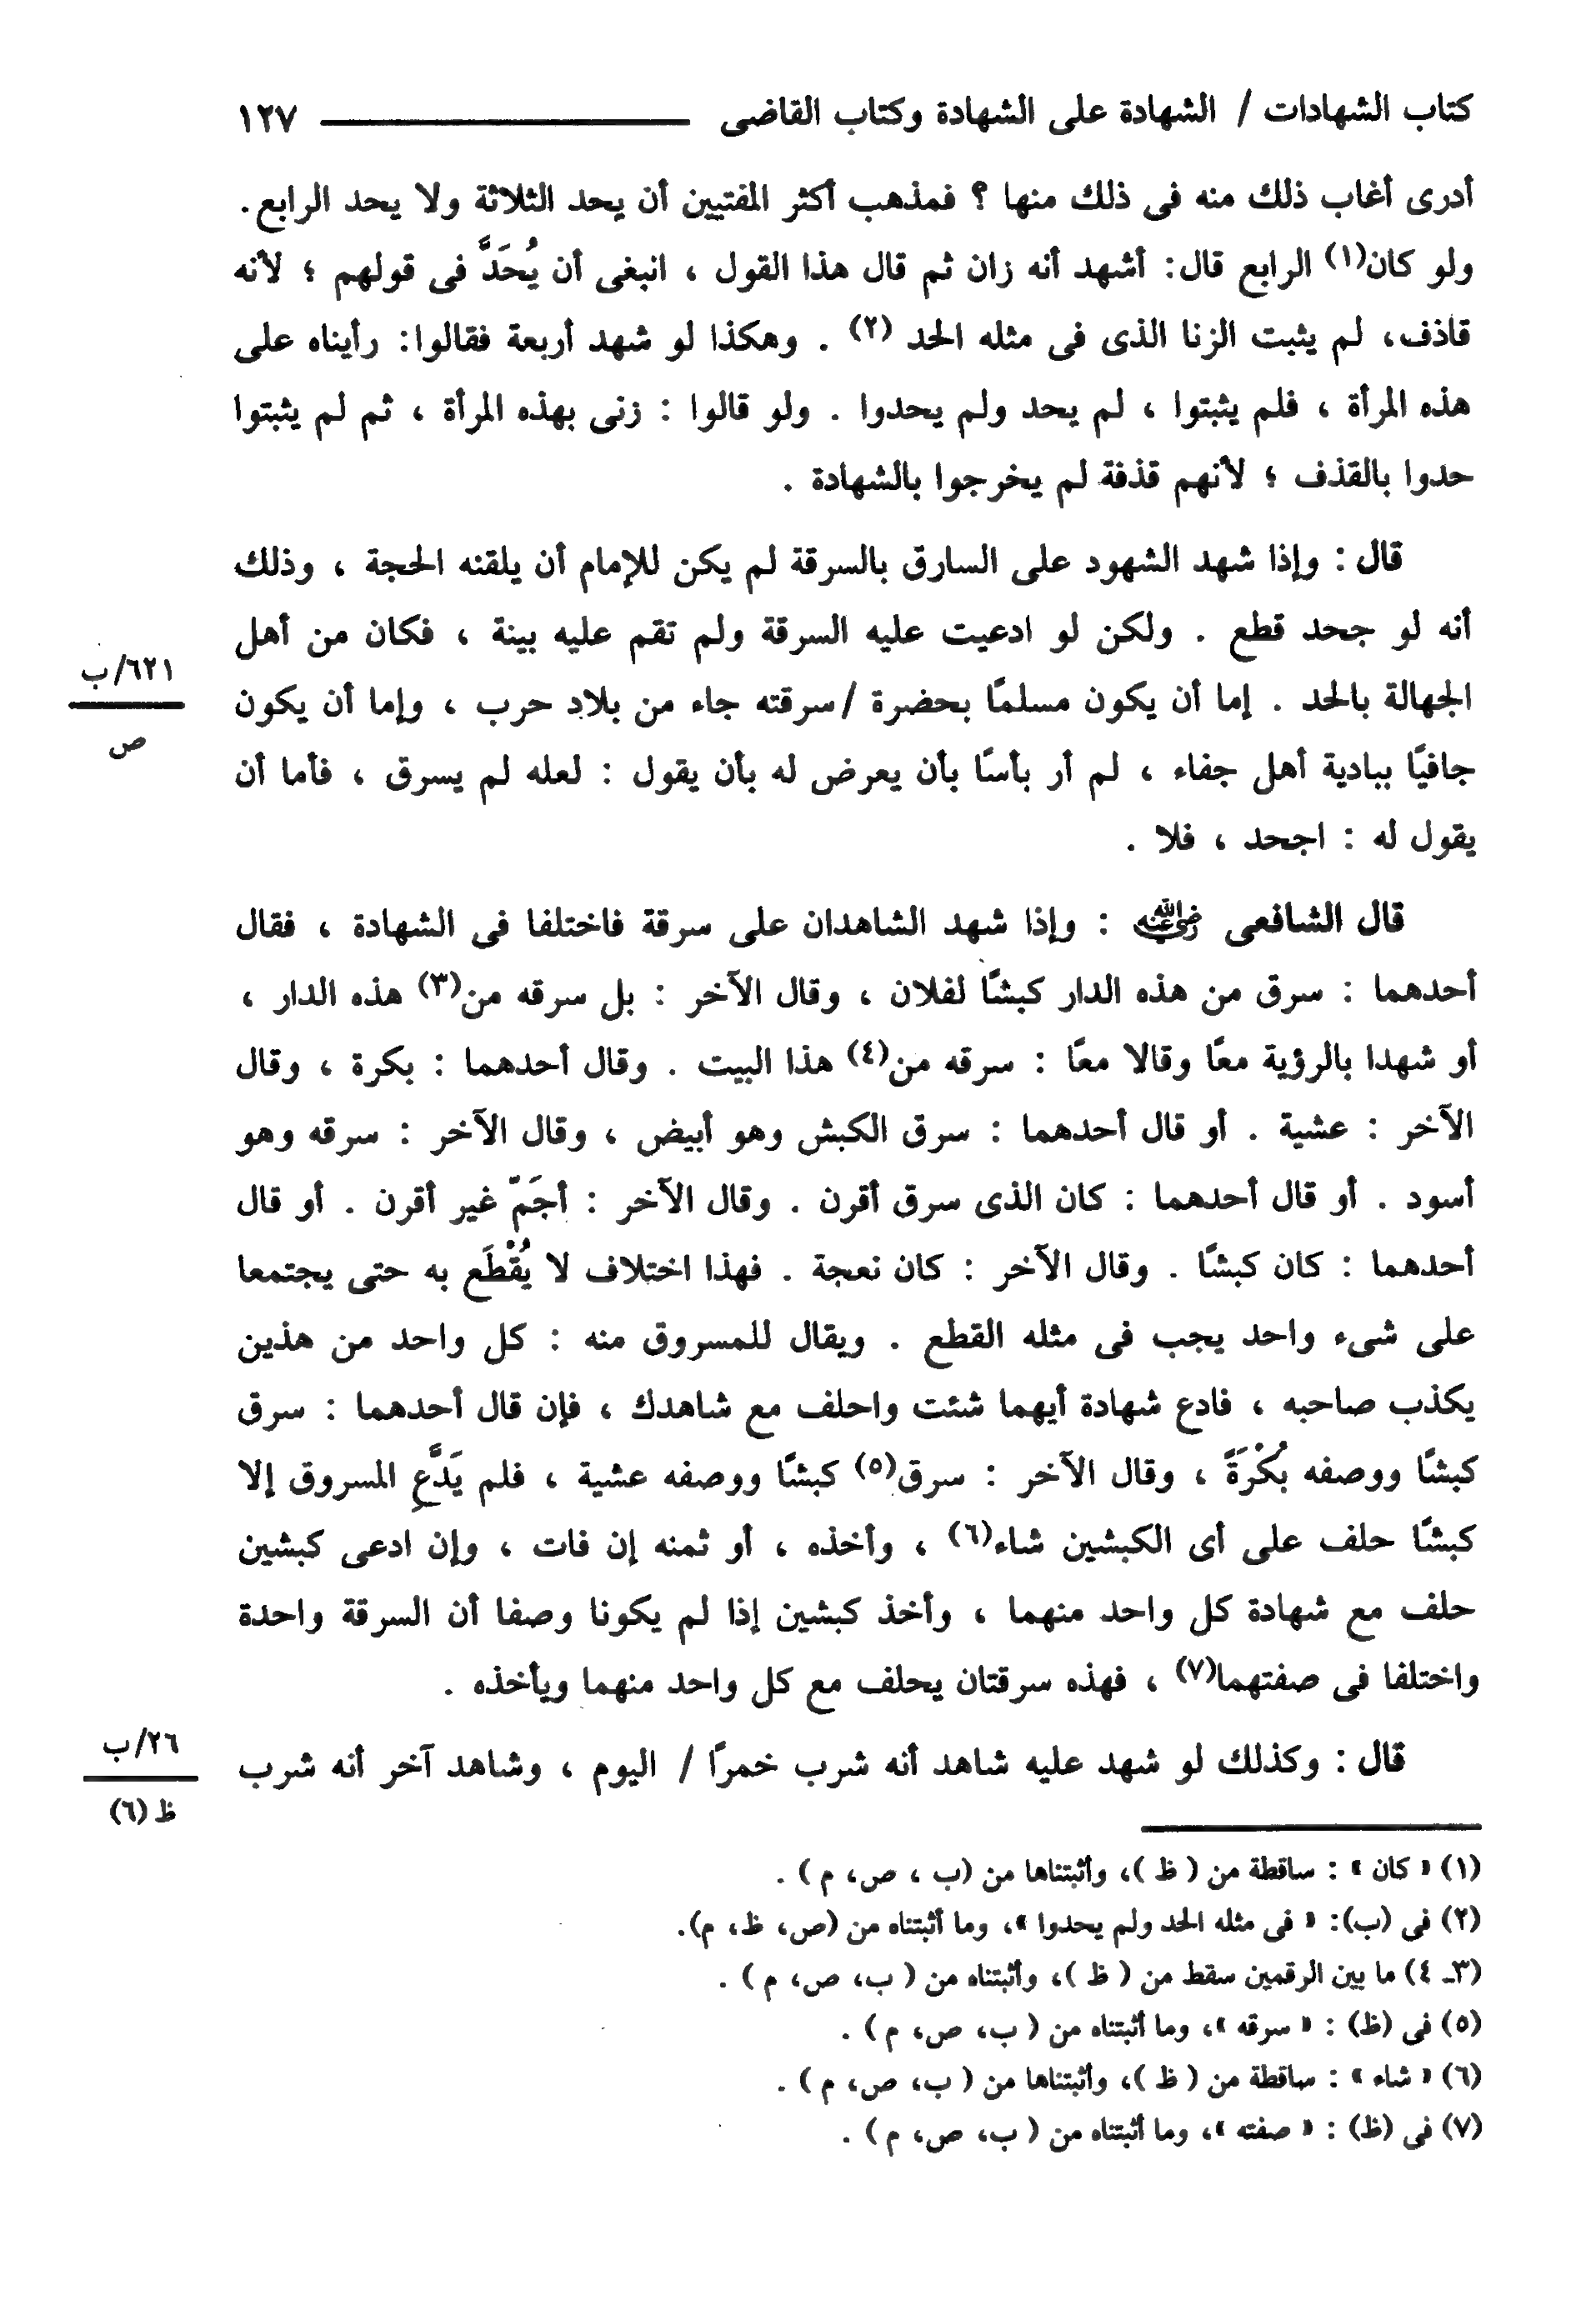 كتاب الشهادات / الشهادة على الشهادة وكتاب القاضى ١٢٧
أدرى أغاب ذلك منه فى ذلك منها ؟ فمذهب أكثر المفتيين أن يحد الثلاثة ولا يحد الرابع.
ولو كان(١) الرابع قال: أشهد أنه زان ثم قال هذا القول ، انبغى أن يُحَدَّ فى قولهم ؛ لأنه
قاذف، لم يثبت الزنا الذى فى مثله الحد (٢) . وهكذا لو شهد أربعة فقالوا: رأيناه على
هذه المرأة ، فلم يثبتوا ، لم يحد ولم يحدوا . ولو قالوا : زنى بهذه المرأة ، ثم لم يثبتوا
حدوا بالقذف ؛ لأنهم قذفة لم يخرجوا بالشهادة .
قال : وإذا شهد الشهود على السارق بالسرقة لم يكن للإمام أن يلقنه الحجة ، وذلك
أنه لو جحد قطع . ولكن لو ادعيت عليه السرقة ولم تقم عليه بينة ، فكان من أهل
الجهالة بالحد . إما أن يكون مسلمًا بحضرة /سرقته جاء من بلاد حرب ، وإما أن يكون
٦٢١/ب
ص
جافيًا ببادية أهل جفاء ، لم أر بأسًا بأن يعرض له بأن يقول : لعله لم يسرق ، فأما أن
يقول له : اجحد ، فلا .
قال الشافعى رضي الله عنه : وإذا شهد الشاهدان على سرقة فاختلفا فى الشهادة ، فقال
أحدهما : سرق من هذه الدار كبشًا لفلان ، وقال الآخر : بل سرقه من(٣) هذه الدار ،
أو شهدا بالرؤية معًا وقالا معًا : سرقه من(٤) هذا البيت . وقال أحدهما : بكرة ، وقال
الآخر : عشية . أو قال أحدهما : سرق الكبش وهو أبيض ، وقال الآخر : سرقه وهو
أسود . أو قال أحدهما : كان الذى سرق أقرن . وقال الآخر : أجَمّ غير أقرن . أو قال
أحدهما : كان كبشًا . وقال الآخر : كان نعجة . فهذا اختلاف لا يُقْطَع به حتى يجتمعا
على شىء واحد يجب فى مثله القطع . ويقال للمسروق منه : كل واحد من هذين
يكذب صاحبه ، فادع شهادة أيهما شئت واحلف مع شاهدك ، فإن قال أحدهما : سرق
كبشًا ووصفه بُكْرَةً ، وقال الآخر : سرق(٥) كبشًا ووصفه عشية ، فلم يَدَّعِ المسروق إلا
كبشًا حلف على أى الكبشين شاء(٦) ، وأخذه ، أو ثمنه إن فات ، وإن ادعى كبشين
حلف مع شهادة كل واحد منهما ، وأخذ كبشين إذا لم يكونا وصفا أن السرقة واحدة
واختلفا فى صفتهما(٧) ، فهذه سرقتان يحلف مع كل واحد منهما ويأخذه .
قال : وكذلك لو شهد عليه شاهد أنه شرب خمرًا / اليوم ، وشاهد آخر أنه شرب
٢٦/ب
ظ (٦)
(١) « كان » : ساقطة من ( ظ )، وأثبتناها من (ب ، ص، م ) .
(٢) فى (ب): « فى مثله الحد ولم يحدوا »، وما أثبتناه من (ص، ظ، م).
(٣ـ ٤) ما بين الرقمين سقط من ( ظ )، وأثبتناه من ( ب، ص، م ) .
(٥) فى (ظ) : « سرقه »، وما أثبتناه من ( ب، ص، م ) .
(٦) « شاء » : ساقطة من ( ظ )، وأثبتناها من ( ب، ص، م ) .
(٧) فى (ظ) : « صفته »، وما أثبتناه من ( ب، ص، م ) .